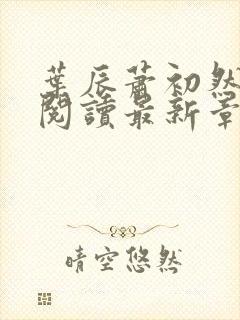 葉辰蕭初然
閱讀最新章
晴空悠然